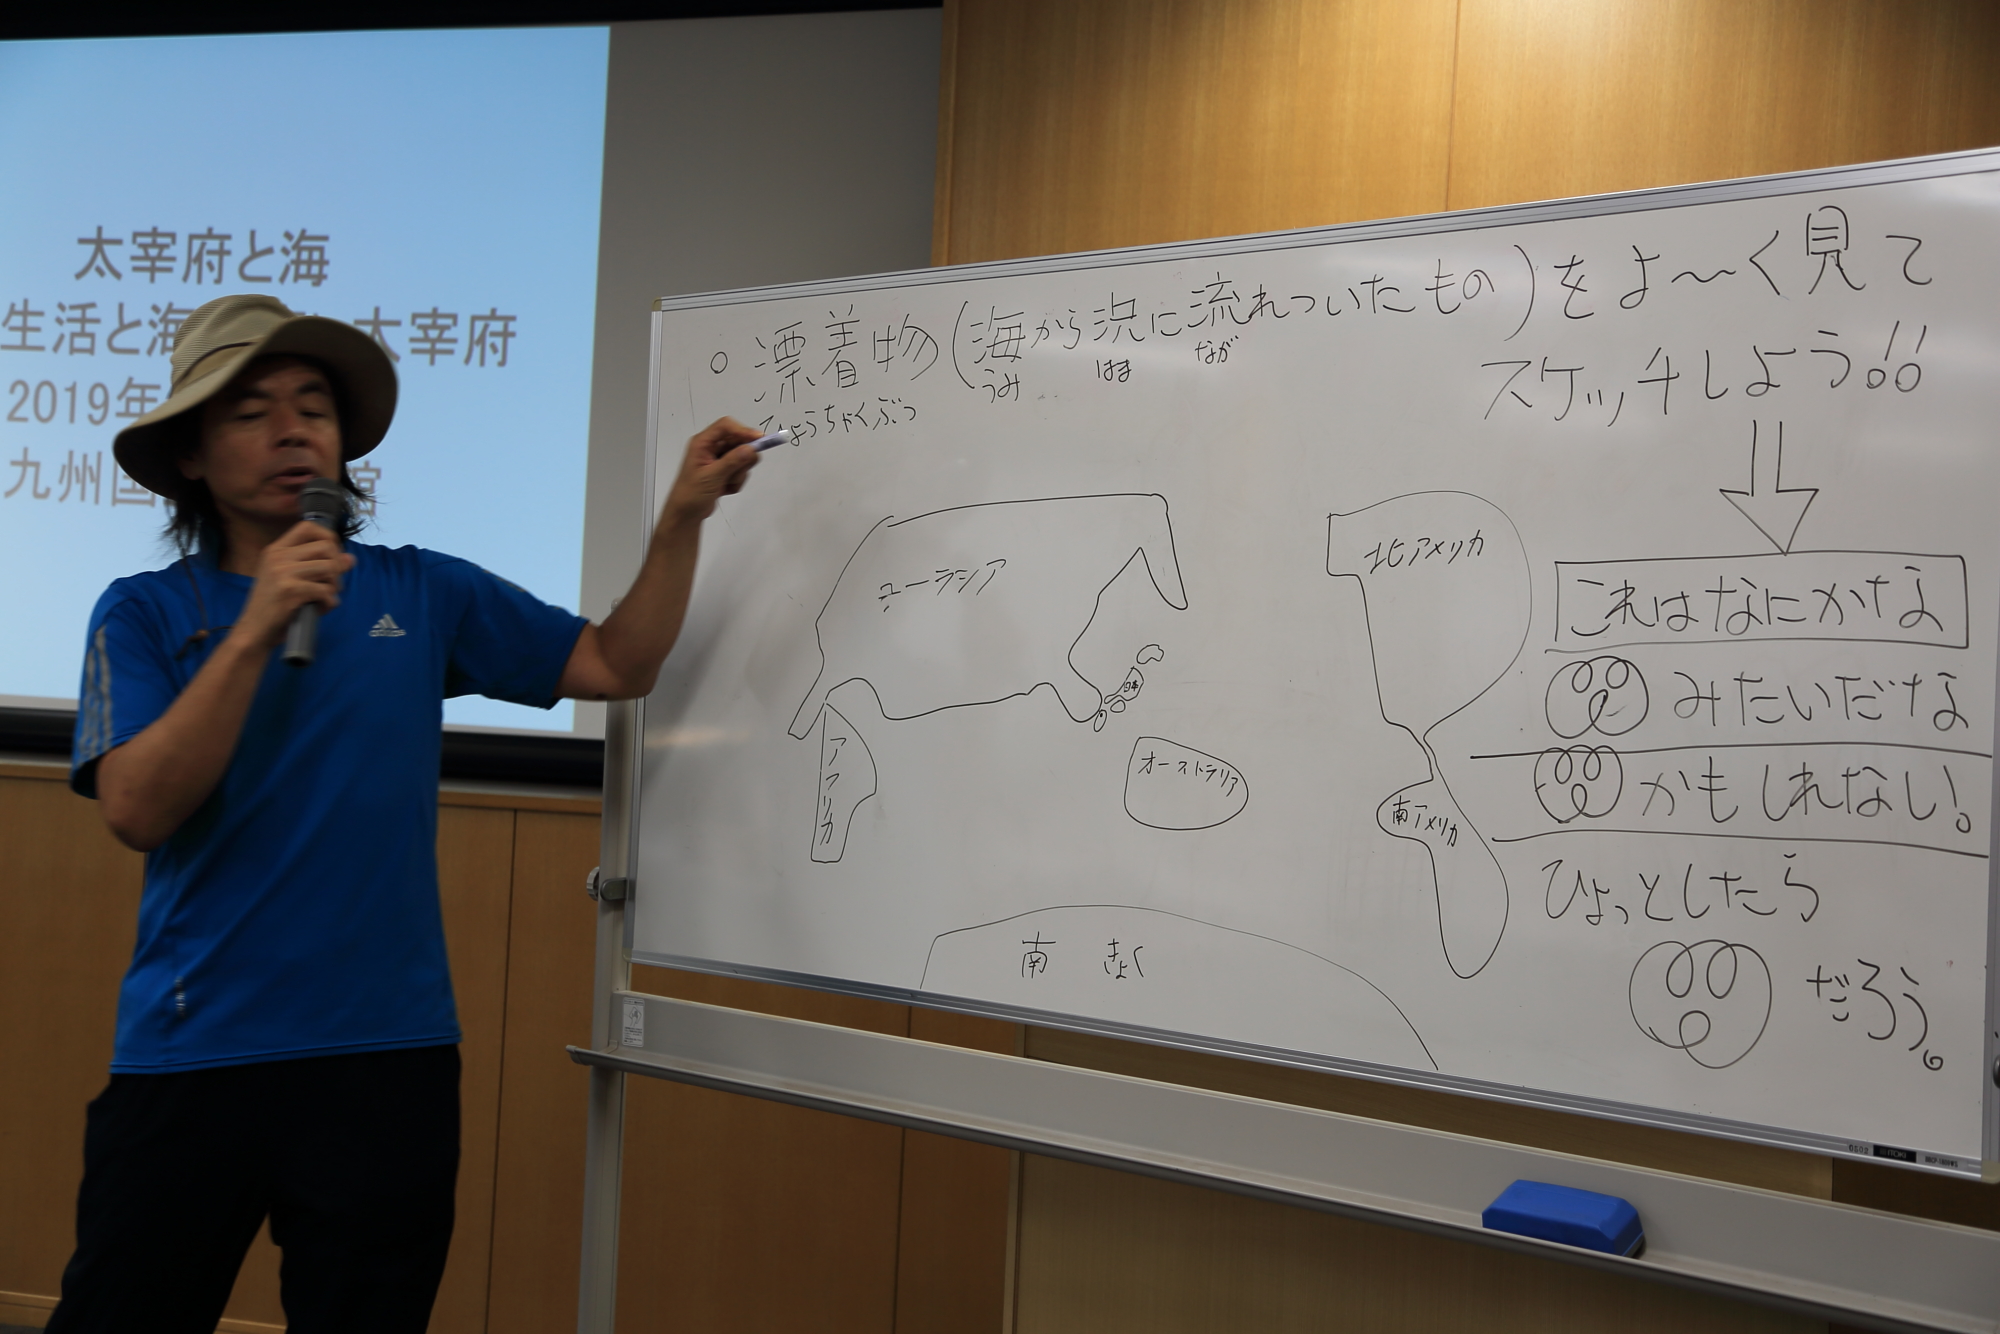 太宰府と海
生活と海 太宰府
2019年
九州国 館
adidas
○ 漂着物(海から浜に流れついたもの)をよ〜く見て
ひょうちゃくぶつ うみ はま なが
スケッチしよう!!
これはなにかな
みたいだな
かもしれない!。
ひょっとしたら
だろう。
ユーラシア
日本
アフリカ
オーストラリア
北アメリカ
南アメリカ
南 きょく
ITOKI